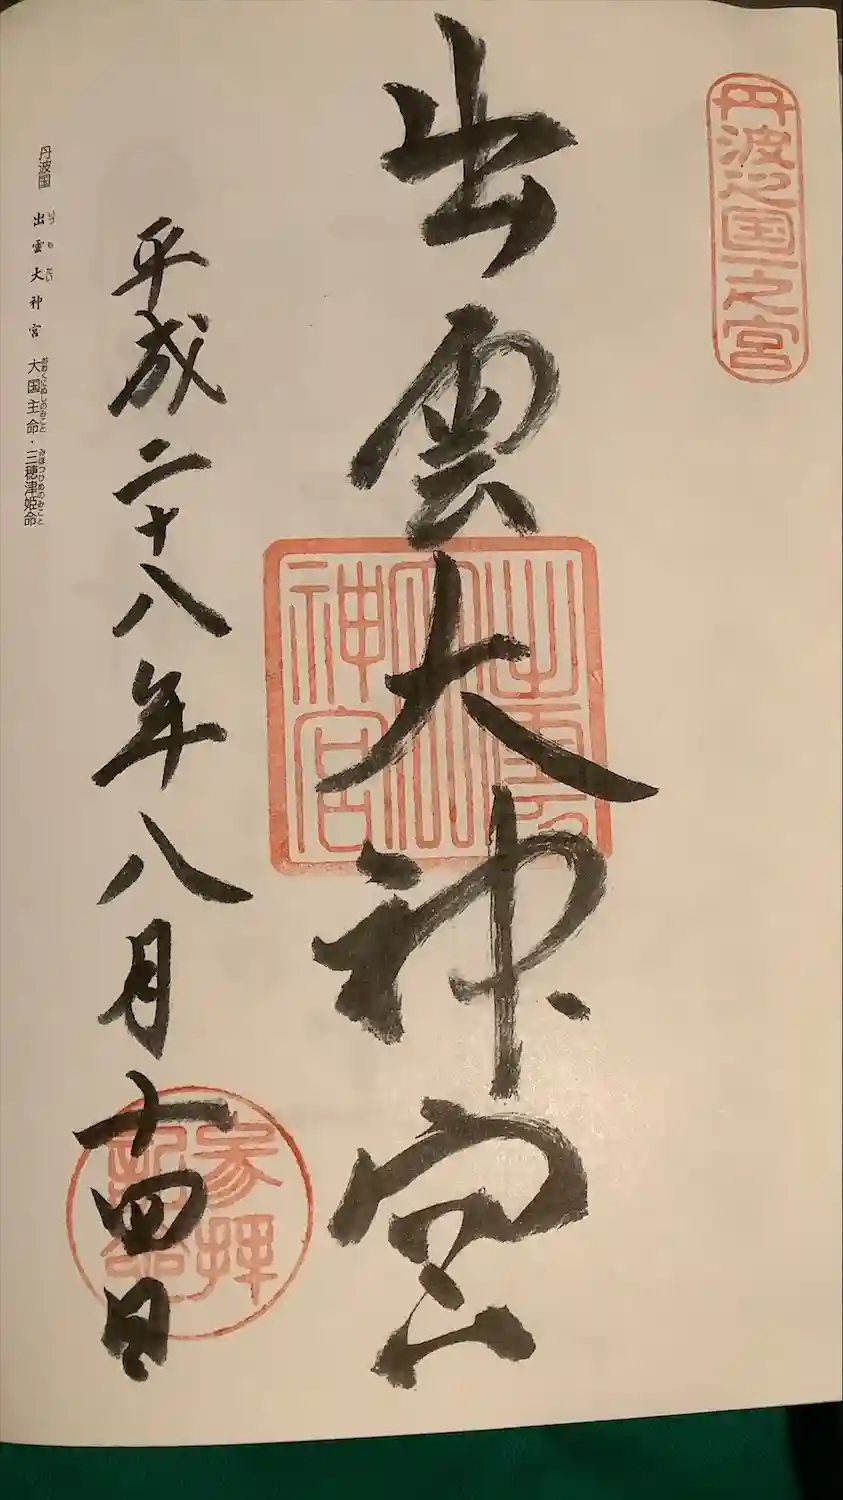 丹波之国一之宮
出雲大神宮
出雲大神宮
平成二十八年八月十四日
参拝記念
丹波国 出雲大神宮 大国主命・三穂津姫命